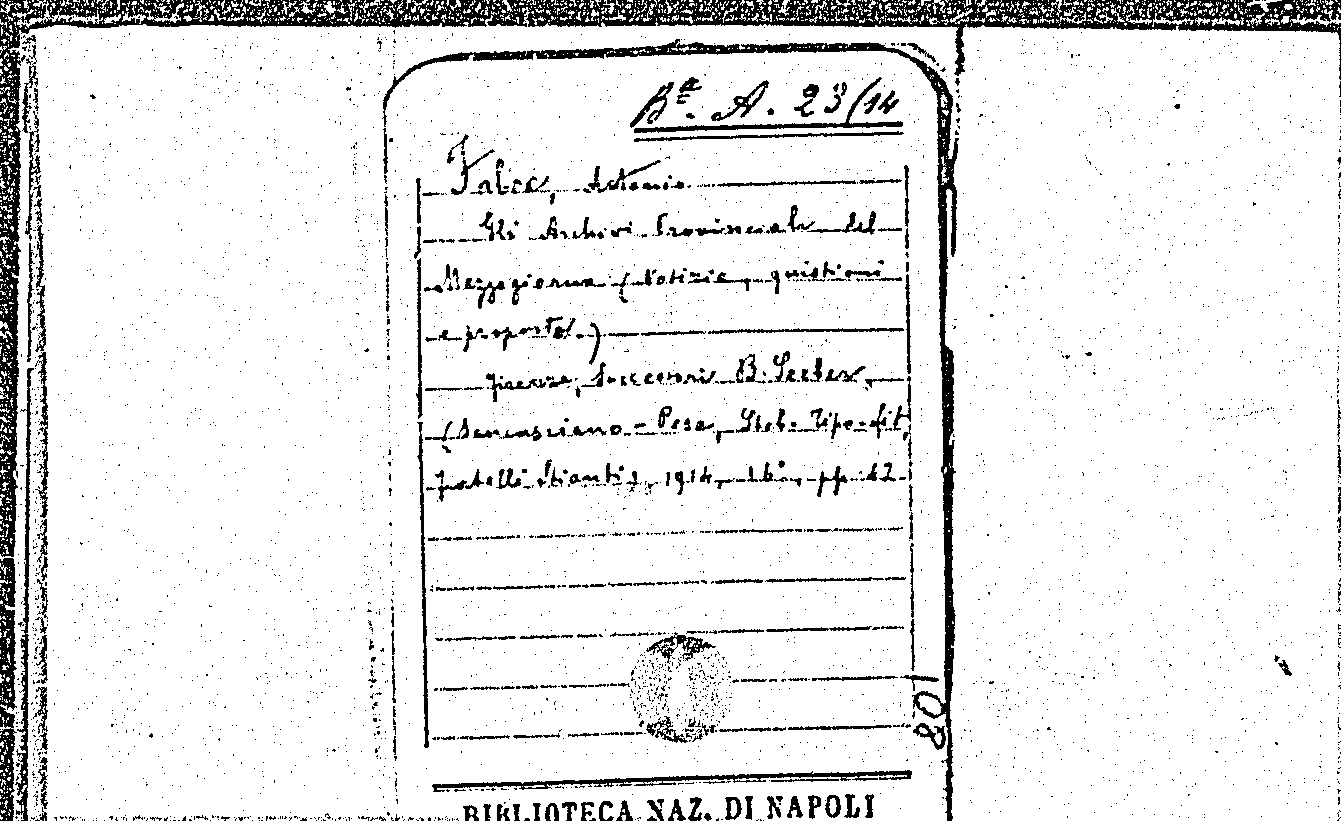 Bª. A. 23/14
Falce, Antonio
Gli Archivi Provinciali del
Mezzogiorno (Notizie, quistioni
e proposte.)
Firenze, Successori B. Seeber,
(Sancasciano - Pesa, Stab. Tipo-lit.
Fratelli Stianti), 1914, 16°, pp. 42
108
BIBLIOTECA NAZ. DI NAPOLI